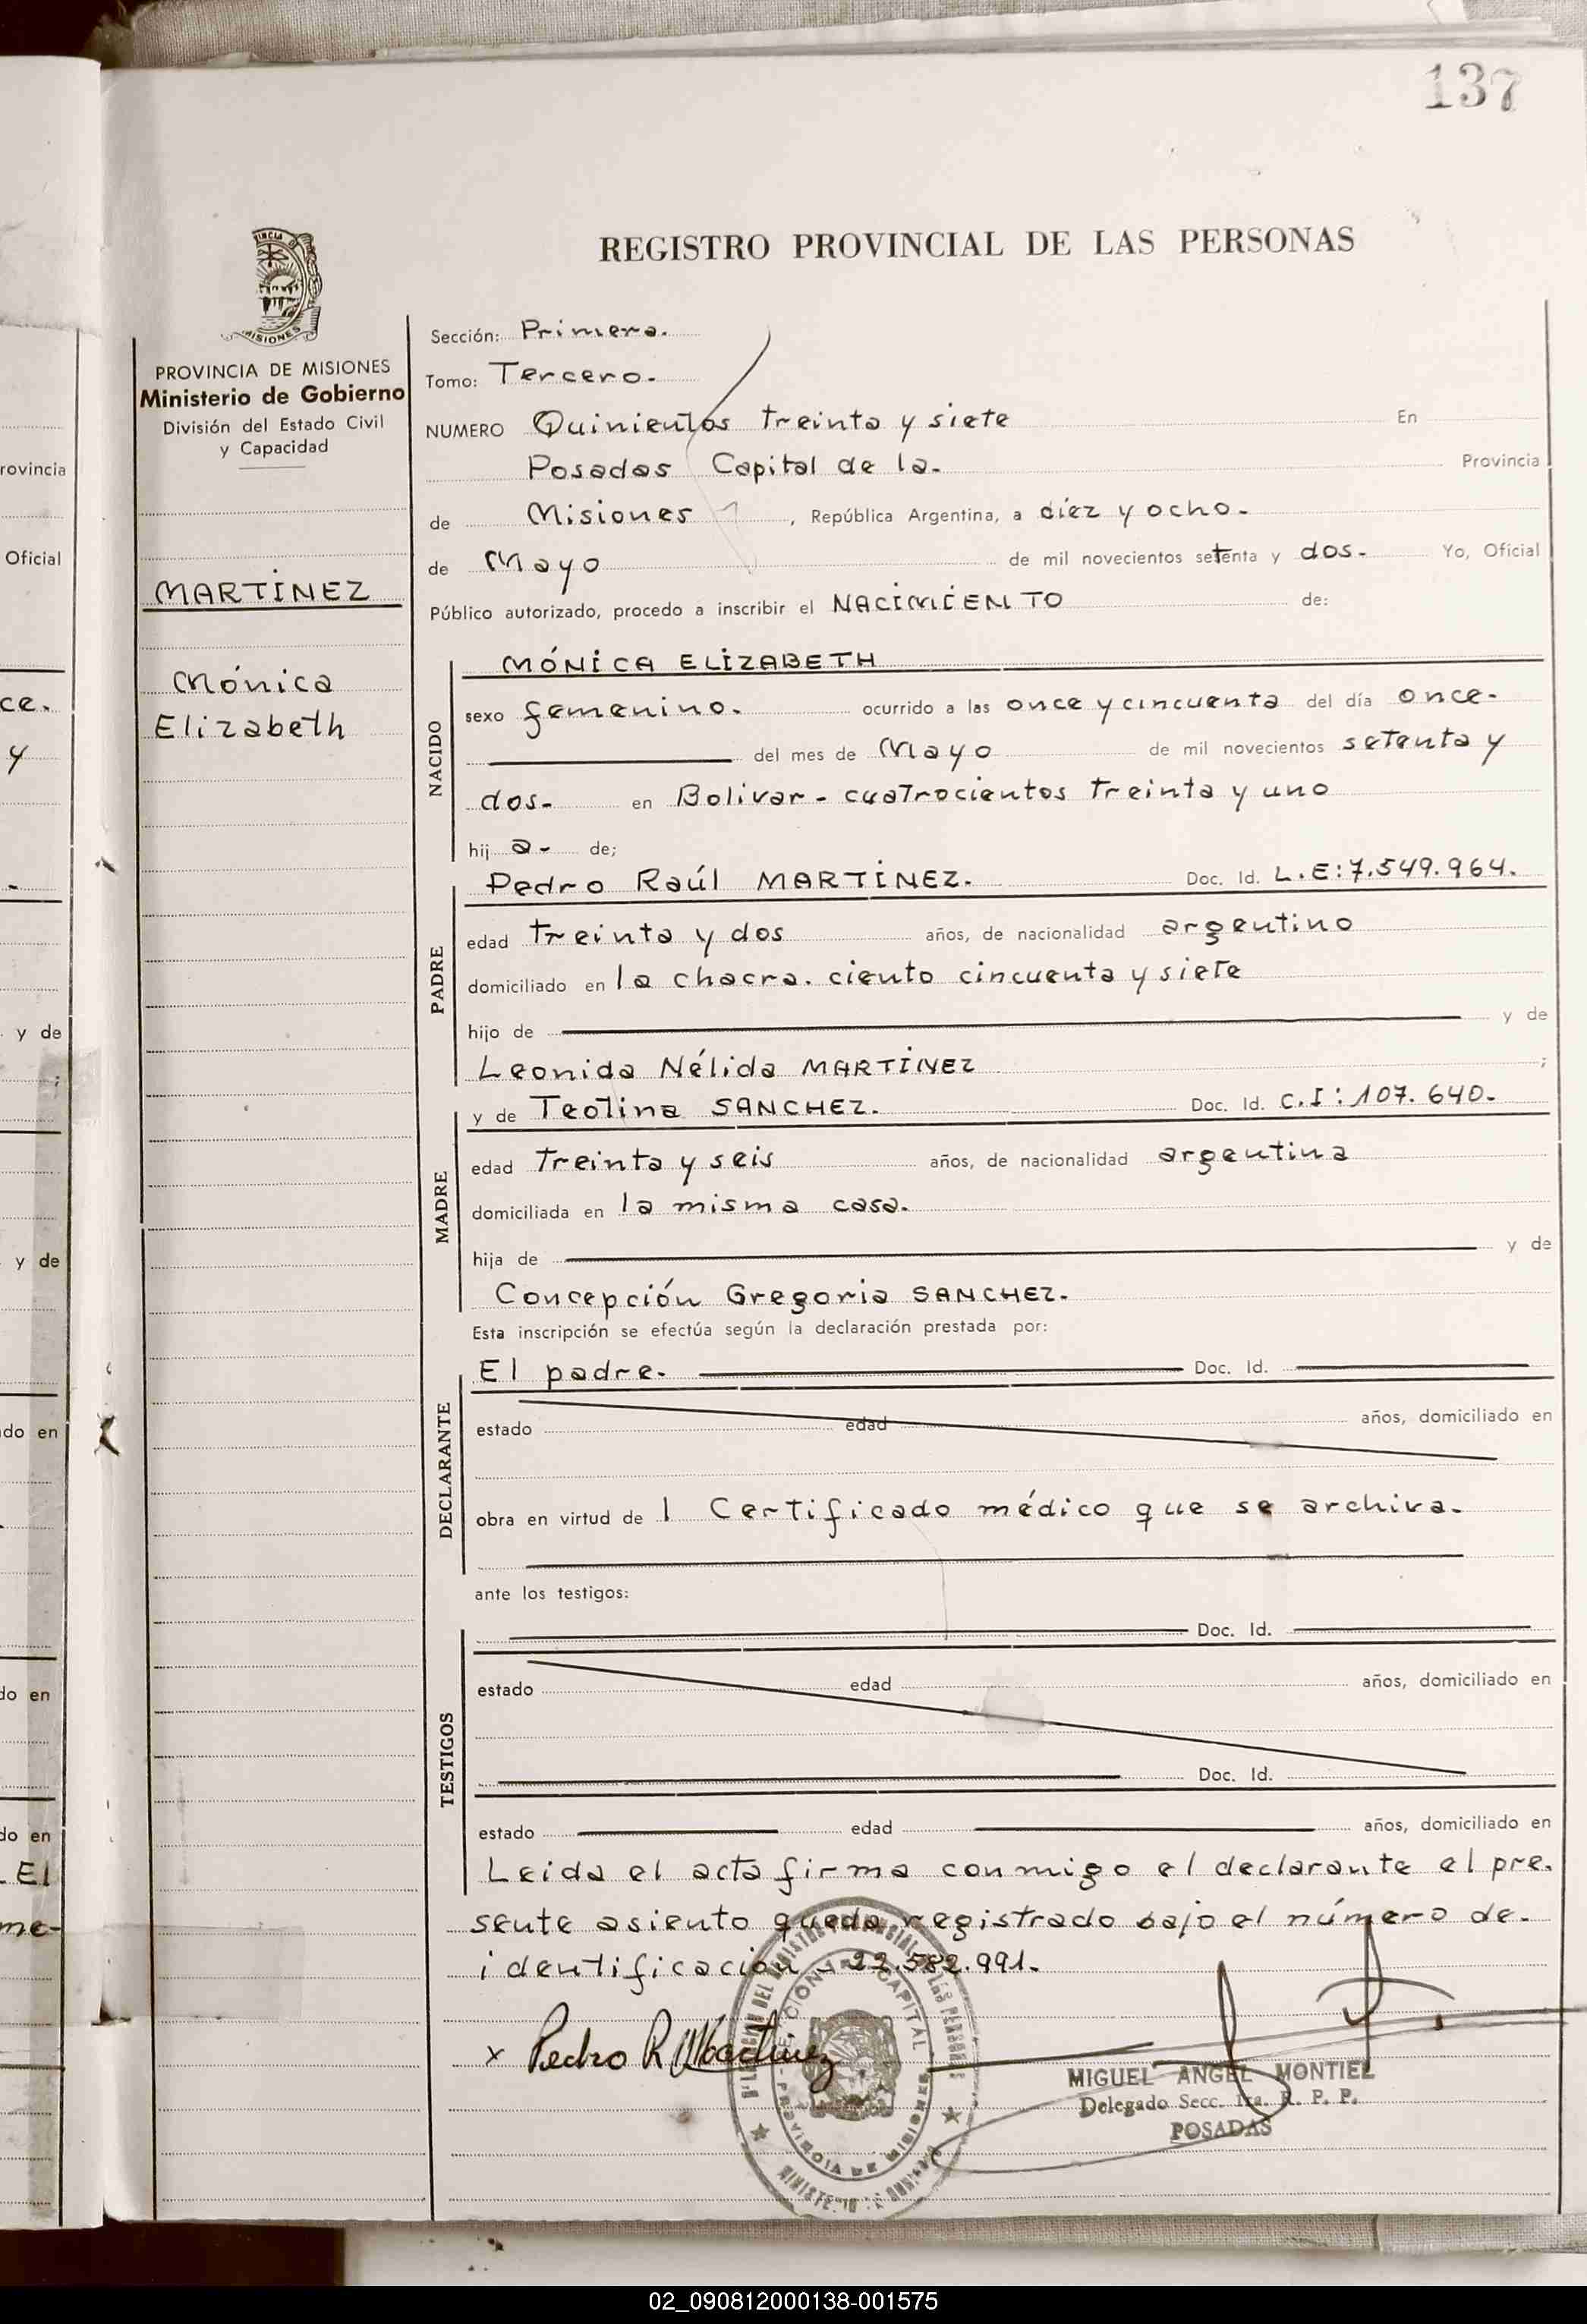 137
REGISTRO PROVINCIAL DE LAS PERSONAS
MISIONES
PROVINCIA DE MISIONES
Ministerio de Gobierno
División del Estado Civil
y Capacidad
MARTÍNEZ
Mónica
Elizabeth
Sección: Primera.
Tomo: Tercero.
NUMERO Quinientos treinta y siete En
Posadas Capital de la. Provincia
de Misiones, República Argentina, a diez y ocho.
de Mayo de mil novecientos setenta y dos. Yo, Oficial
Público autorizado, procedo a inscribir el NACIMIENTO de:
NACIDO
MÓNICA ELIZABETH
sexo femenino. ocurrido a las once y cincuenta del día once-
del mes de Mayo de mil novecientos setenta y
dos- en Bolivar - cuatrocientos treinta y uno
hij a- de;
PADRE
Pedro Raúl MARTÍNEZ. Doc. Id. L.E:7.549.964.
edad treinta y dos años, de nacionalidad argentino
domiciliado en la chacra. ciento cincuenta y siete
hijo de y de
Leonida Nélida MARTÍNEZ ;
MADRE
y de Teolina SANCHEZ. Doc. Id. C.I: 107.640.
edad treinta y seis años, de nacionalidad argentina
domiciliada en la misma casa.
hija de y de
Concepción Gregoria SANCHEZ.
Esta inscripción se efectúa según la declaración prestada por:
DECLARANTE
El padre. Doc. Id.
estado edad años, domiciliado en
obra en virtud de 1 Certificado médico que se archiva.
ante los testigos:
TESTIGOS
Doc. Id.
estado edad años, domiciliado en
Doc. Id.
estado edad años, domiciliado en
Leida el acta firma conmigo el declarante el pre.
sente asiento queda registrado bajo el número de.
identificación - 22.582.991.
x Pedro R Martinez
MIGUEL ANGEL MONTIEL
Delegado Secc. 1ra. R. P. P.
POSADAS
CAPITAL
PROVINCIA DE MISIONES
rovincia
Oficial
ce.
y
y de
;
y de
do en
do en
do en
El
me-
02_090812000138-001575